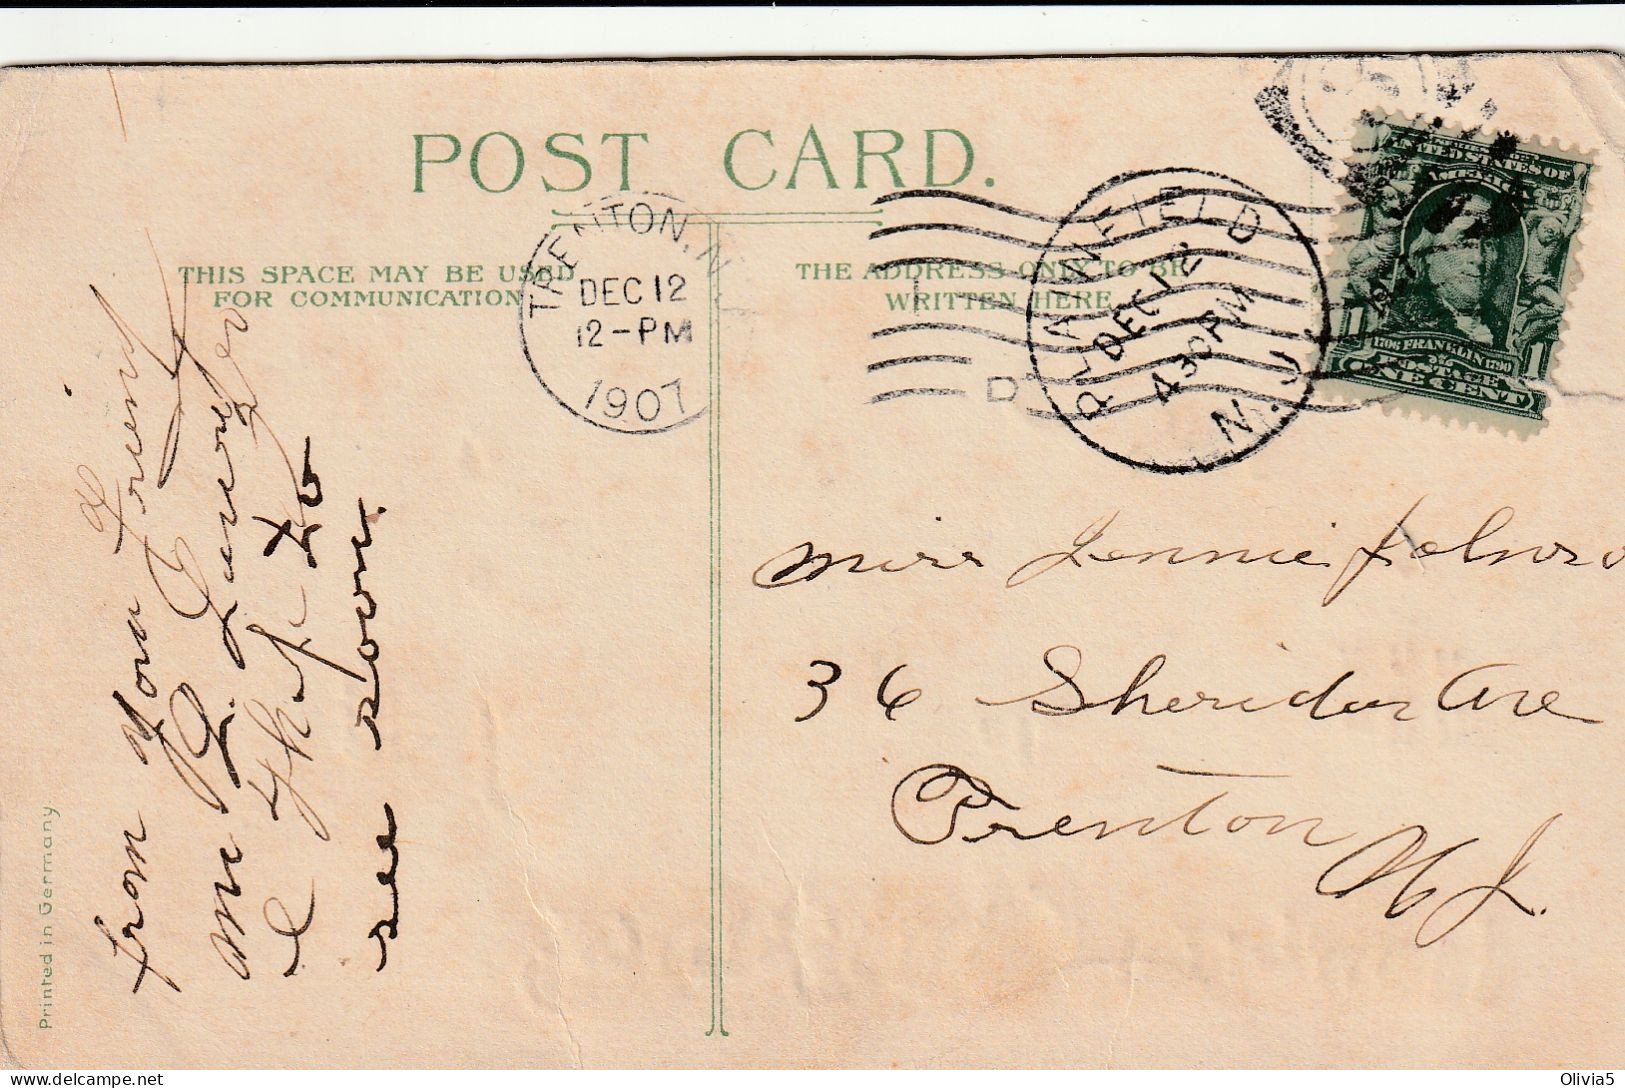 POST CARD.
THIS SPACE MAY BE USED
FOR COMMUNICATION
THE ADDRESS ONLY TO BE
WRITTEN HERE
TRENTON, N
DEC 12
12-PM
1907
D
PLAINFIELD
N. J.
DEC 12
430PM
UNITED STATES OF
AMERICA
1706 FRANKLIN 1790
POSTAGE
ONE CENT
1 1
Miss Jennie Johnso
36 Sheridan Ave
Trenton N J.
from your Friend
Mr
I hope to
see soon.
Printed in Germany
Olivia5